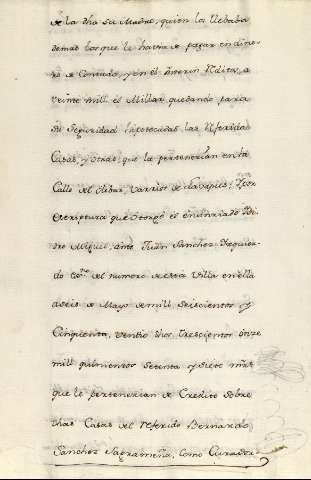 de la dha su Madre, quien los llebaba
demas los que le havia de pagar en dine-
ro de Contado, y en el ynterin Réditos, a
veinte mill el Millar quedando para
su Seguridad hipotecadas las referidas
Casas, y otras, que la pertenecian en la
Calle del Varrio de Lavapies, Ypor
Escriptura que otorgó el enunziado
Miguel, ante Juan Sanchez Yzquier-
do del numero de esta Villa en ella
a seis de Mayo de mill, seiscientos y
Cinquenta, vendio dhos trescientos onze
mill quinientos setenta y siete mrs
que le pertenecian de Credito sobre
dhas Casas del referido Bernardo
Sanchez Sagrameña, como Curador